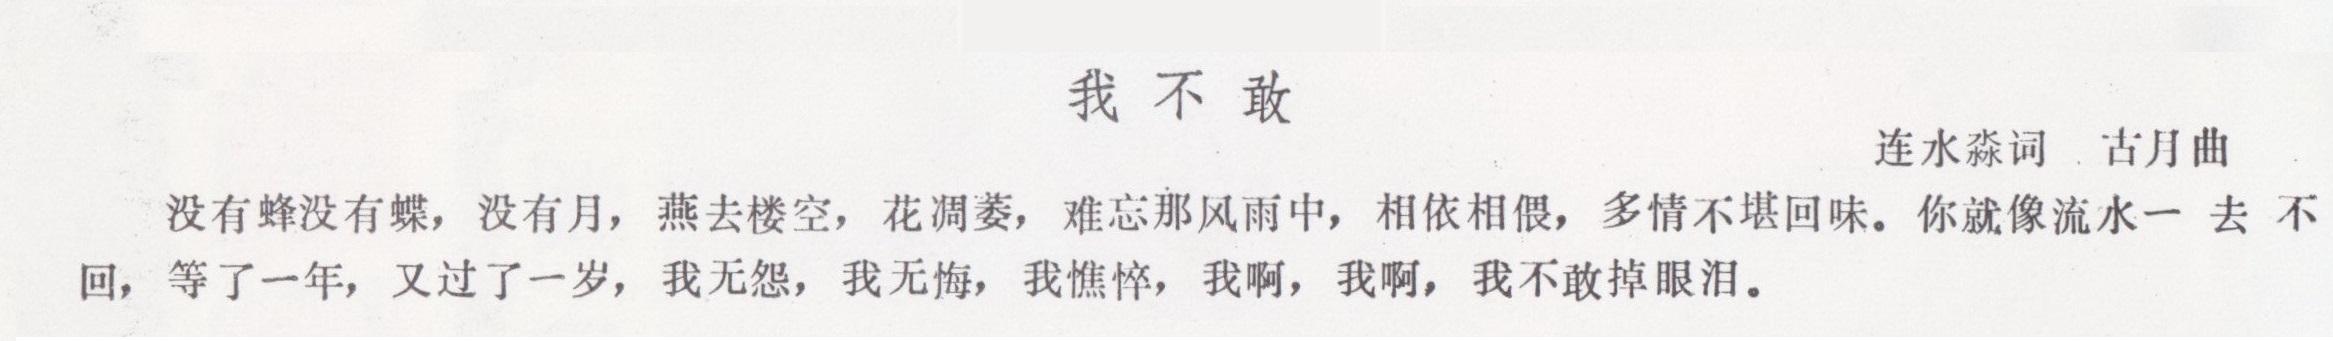 我不敢
连水淼词 古月曲
没有蜂没有蝶，没有月，燕去楼空，花凋萎，难忘那风雨中，相依相偎，多情不堪回味。你就像流水一去不
回，等了一年，又过了一岁，我无怨，我无悔，我憔悴，我啊，我啊，我不敢掉眼泪。